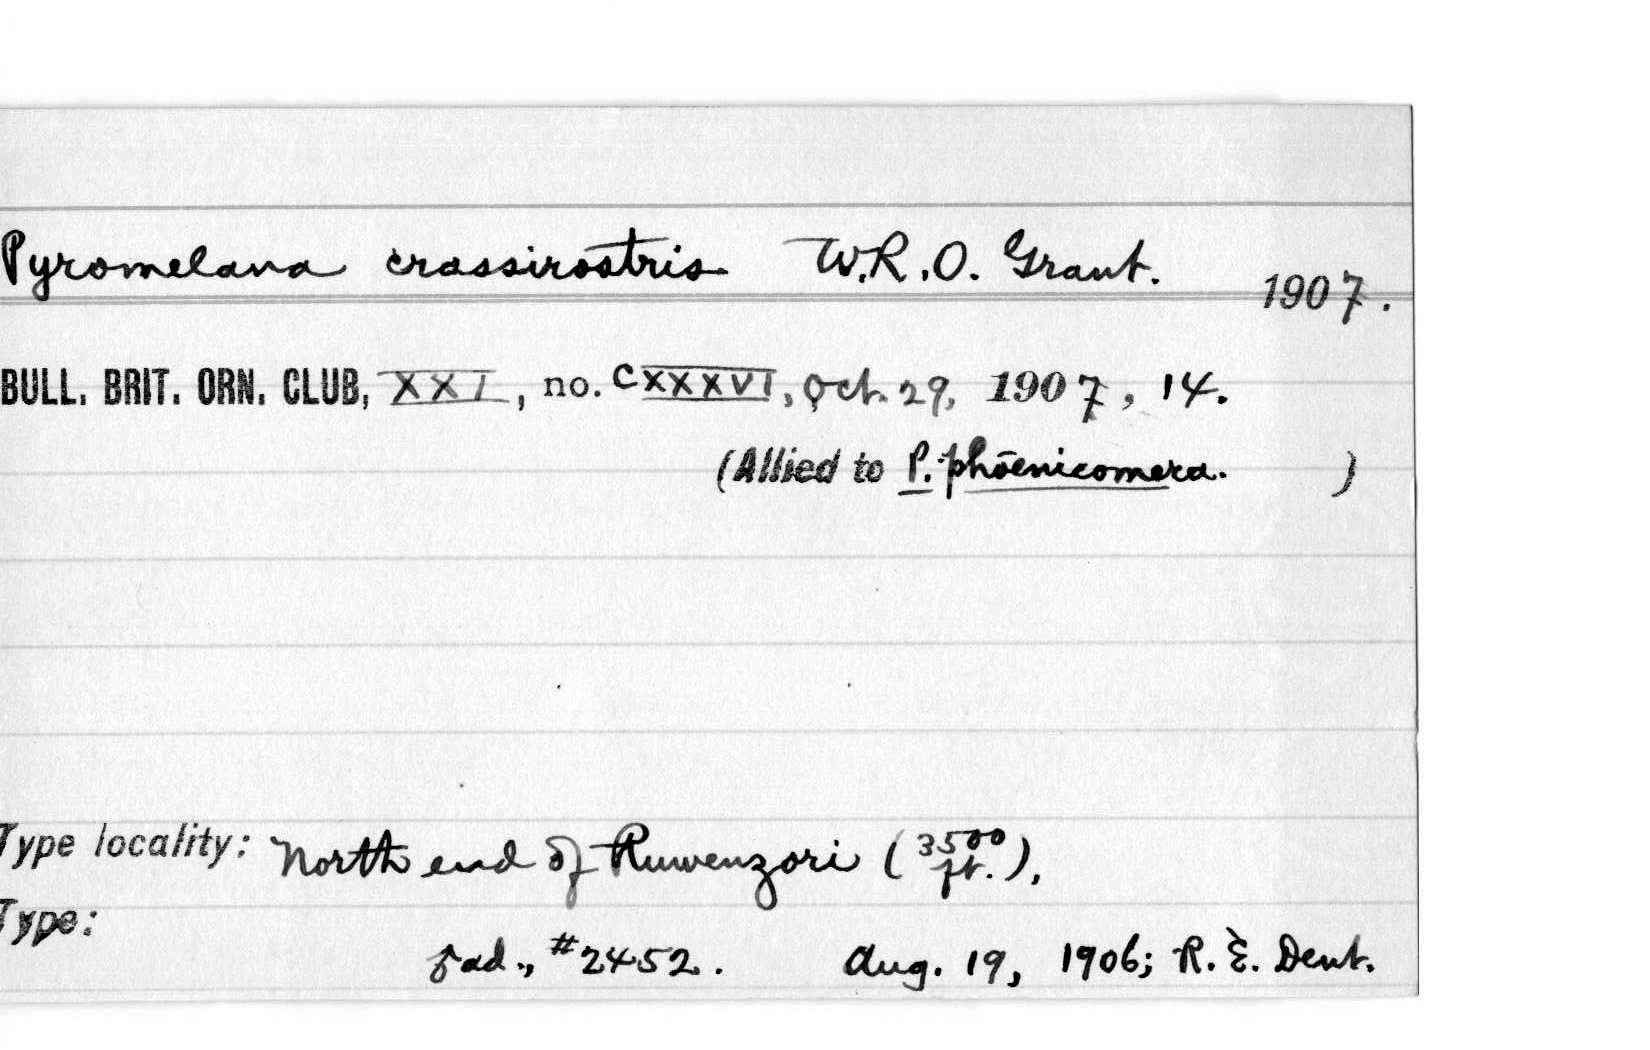 Pyromelana crassirostris W.R.O. Grant. 1907.
BULL. BRIT. ORN. CLUB, XXI, no. CXXXVI, Oct. 29, 1907, 14.
(Allied to P. phoenicomera. )
Type locality: North end of Ruwenzori (3500 ft.),
Type:
ad., #2452. Aug. 19, 1906; R. E. Dent.